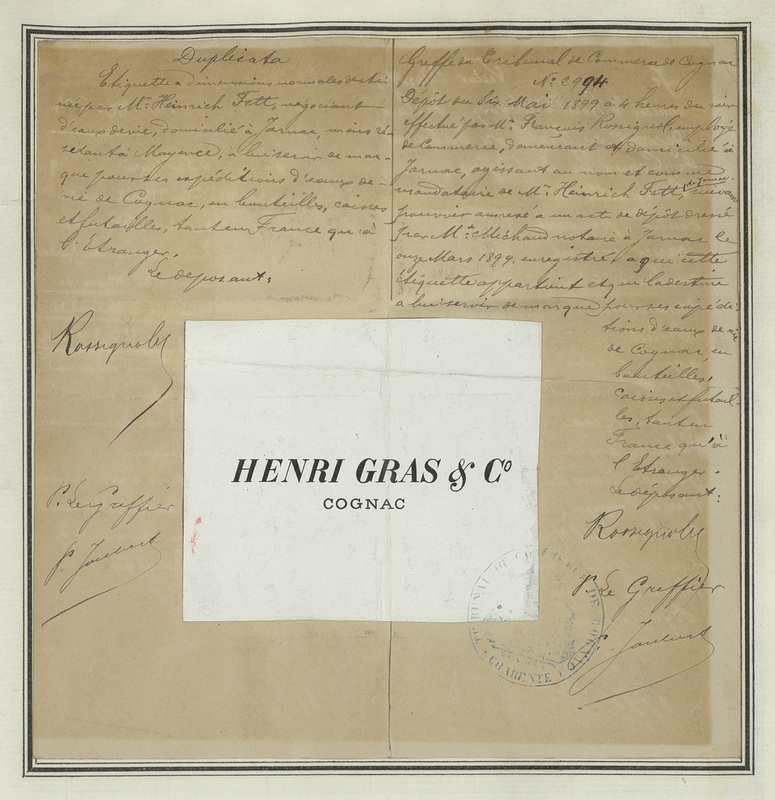 Duplicata
Etiquette a dimensions normales desti
née par Mr. Heinrich Fett, négociant
d'eaux de vie, domicilié à Jarnac, mais ré-
sidant à Mayence, à lui servir de mar-
que pour ses expéditions d'eaux de
vie de Cognac, en bouteilles, caisses
et futailles, tant en France que à
l'Etranger.
Le déposant:
Rossignol
P. Le Greffier
P. Joubert
Greffe du Tribunal de Commerce de Cognac
No. 2994
Dépôt du Six Mai 1899 à 4 heures du soir
effectué par Mr. François Rossignol, employé
de Commerce, demeurant et domicilié à
Jarnac, agissant au nom et comme
mandataire de Mr. Heinrich Fett, de Jarnac, suivant
pouvoir annexé à un acte de dépôt dressé
par Me. Michaud notaire à Jarnac le
onze Mars 1899, enregistré, à qui cette
étiquette appartient et qui la destine
à lui servir de marque pour ses expédi-
tions d'eaux de vie
de Cognac, en
bouteilles,
caisses et futail-
les, tant en
France qu'à
l'Etranger.
Le déposant:
Rossignol
P. Le Greffier
P. Joubert
HENRI GRAS & Co
COGNAC
TRIBUNAL DE COMMERCE DE COGNAC
CHARENTE